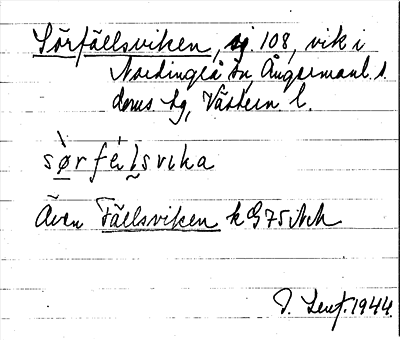 Sörfällsviken, sj. 108, vik i
Nordingrå sn, Ångermanl. s.
doms lg, Västern. l.
sørfelsvika
Även Fällsviken k G75 Nh
1944.